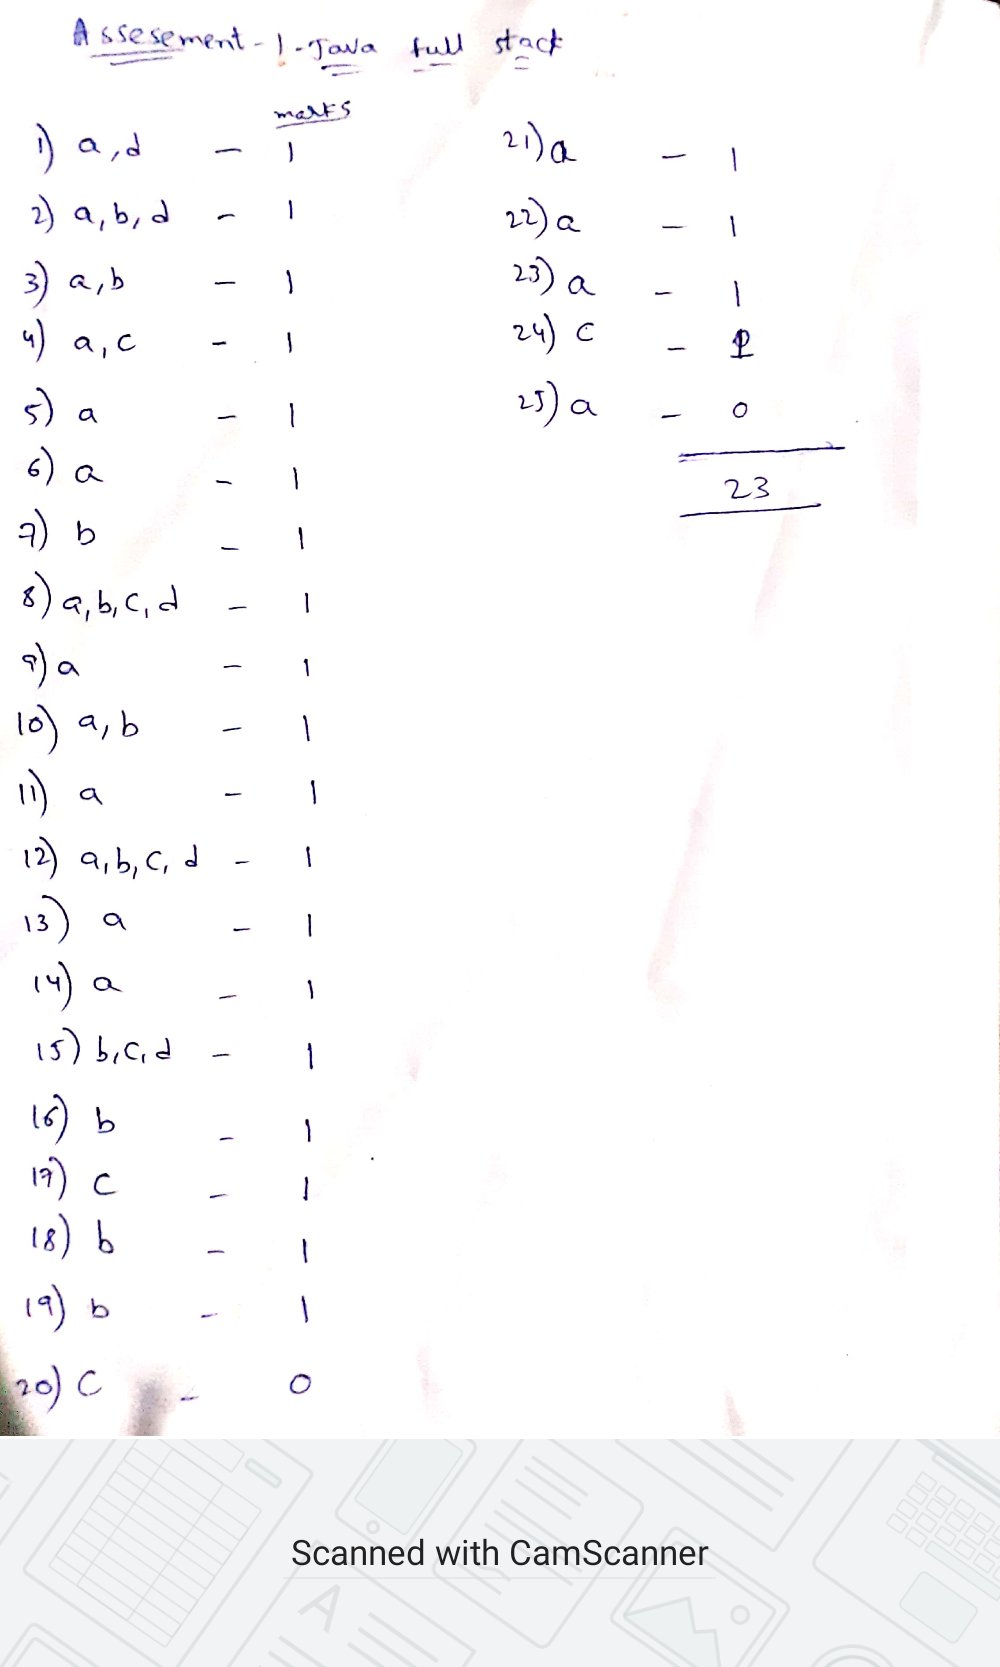 Assesement - 1 - Java full stack
marks
1) a,d - 1
2) a,b,d - 1
3) a,b - 1
4) a,c - 1
5) a - 1
6) a - 1
7) b - 1
8) a,b,c,d - 1
9) a - 1
10) a,b - 1
11) a - 1
12) a,b,c,d - 1
13) a - 1
14) a - 1
15) b,c,d - 1
16) b - 1
17) c - 1
18) b - 1
19) b - 1
20) c - 0
21) a - 1
22) a - 1
23) a - 1
24) c - 1
25) a - 0
23
Scanned with CamScanner